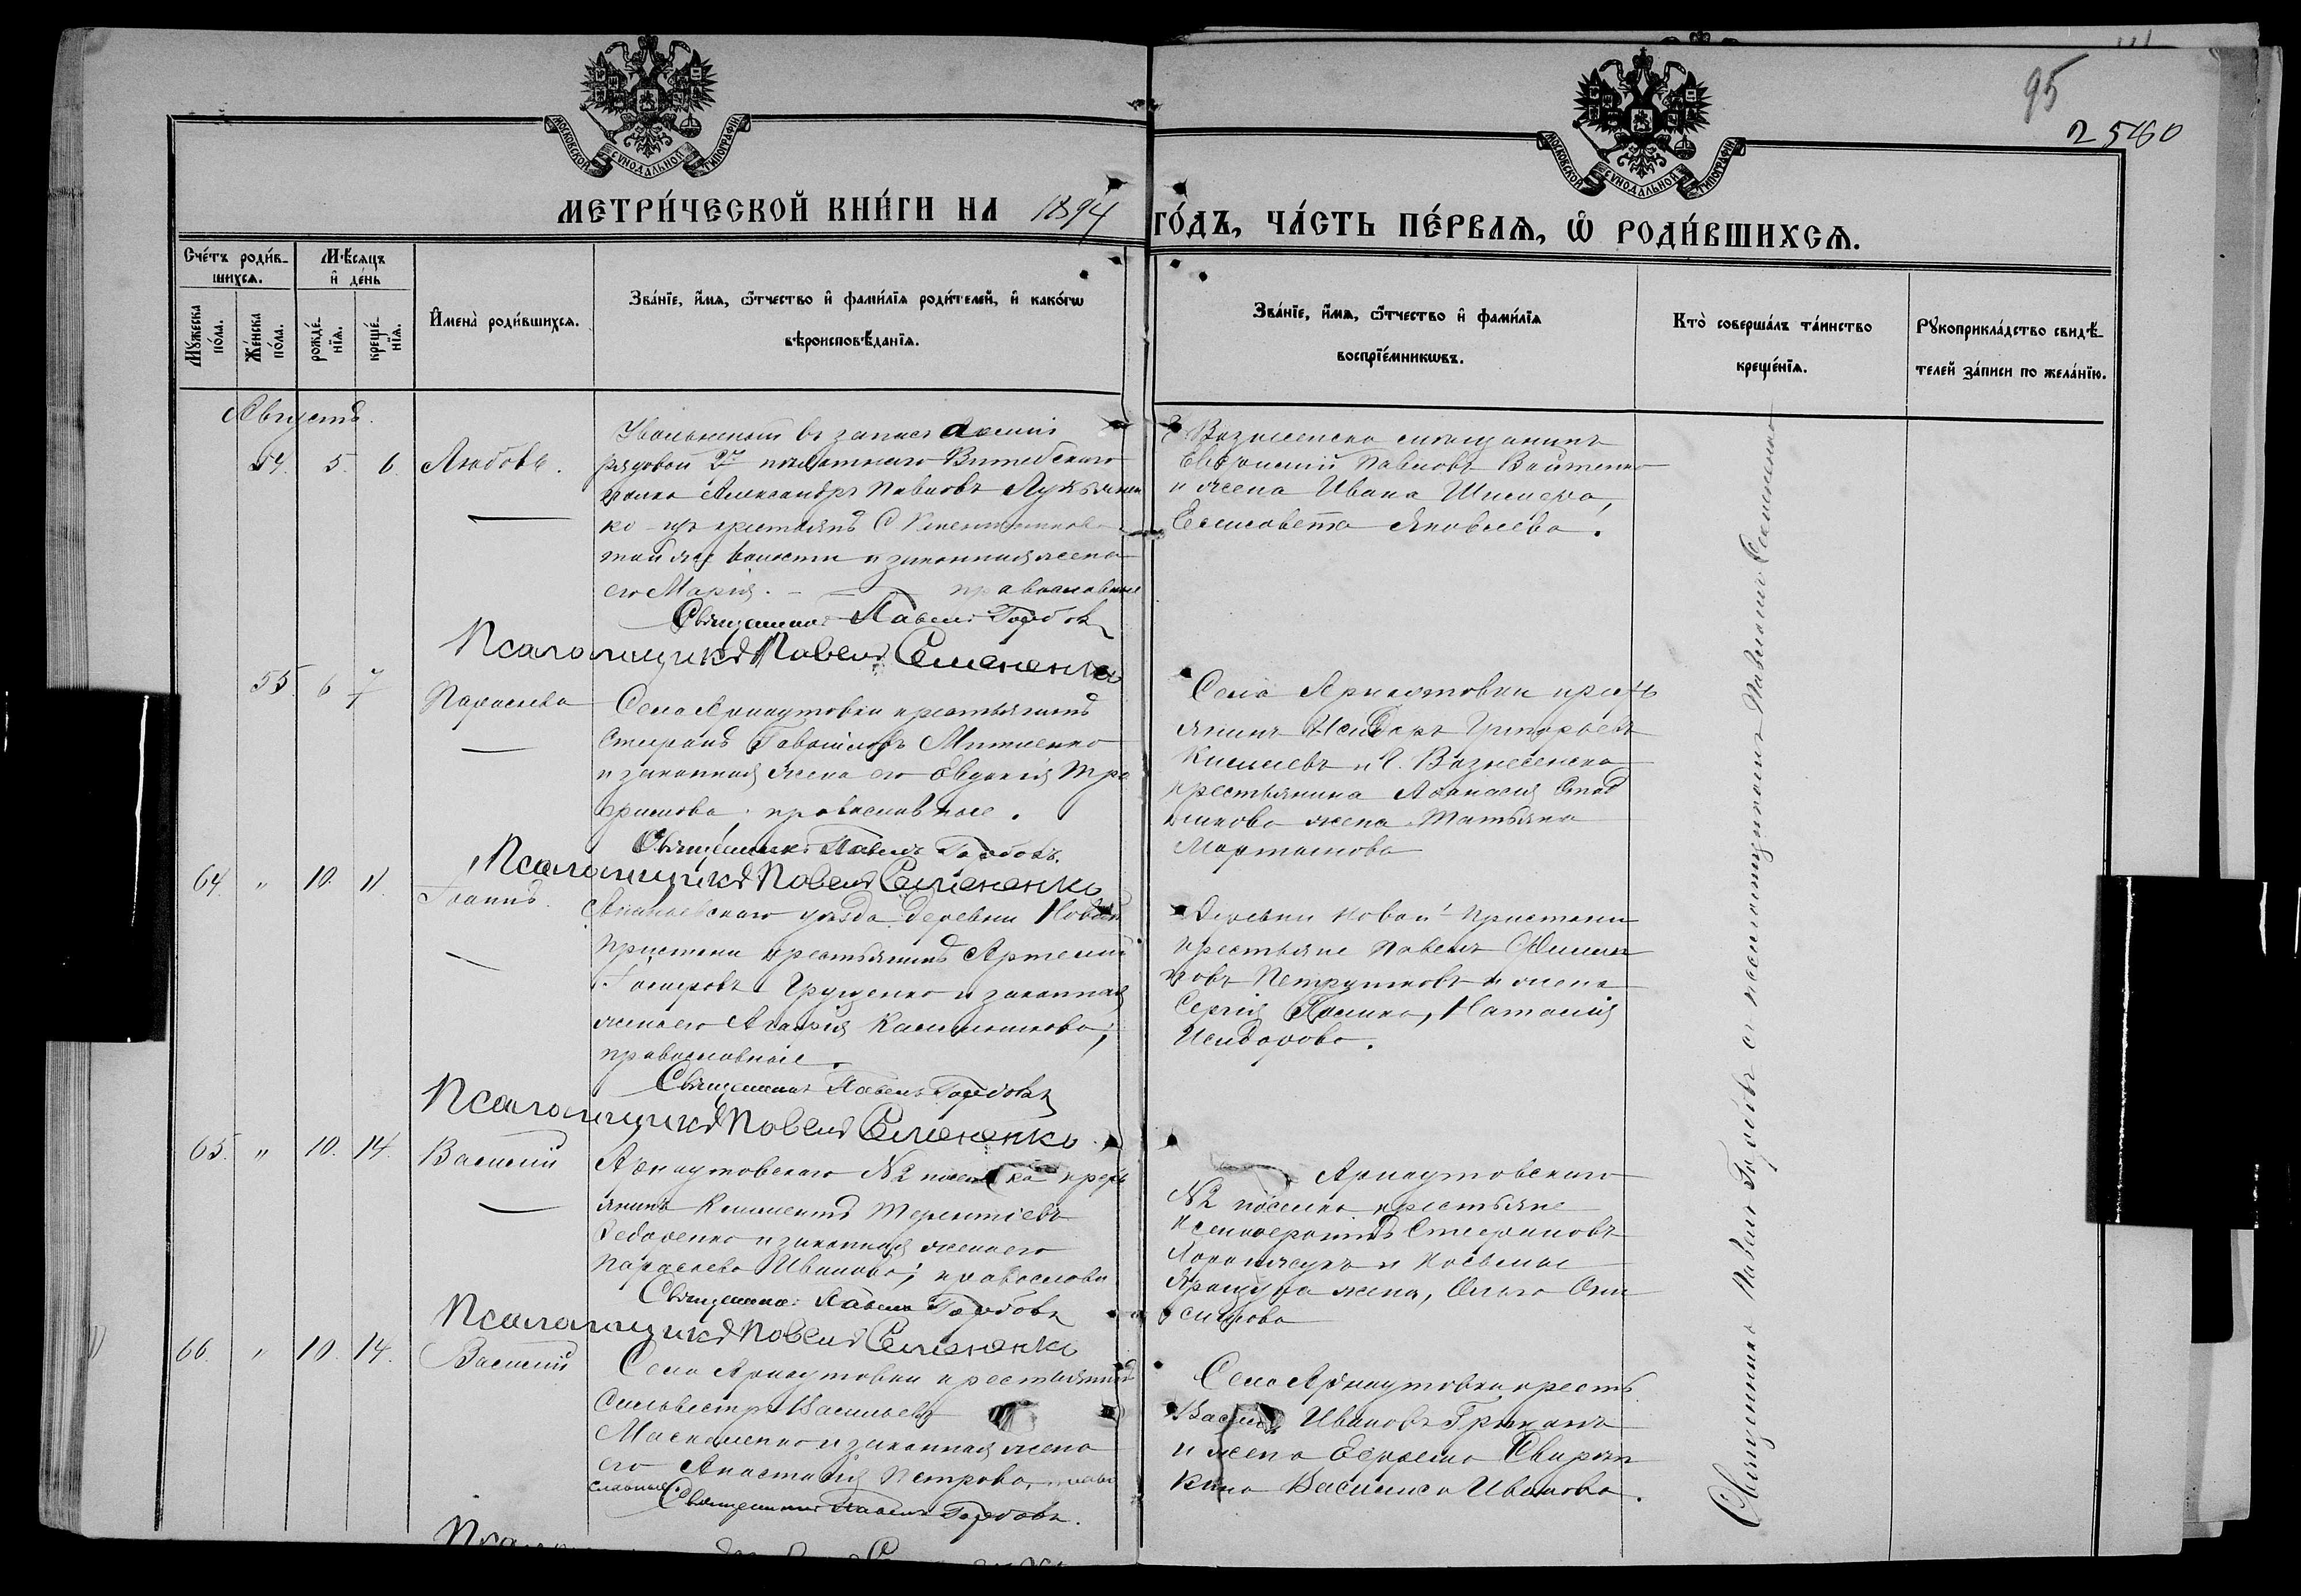 95
2560
МОСКОВСКОЙ СѴНОДАЛЬНОЙ ТИПОГРАФІИ
МОСКОВСКОЙ СѴНОДАЛЬНОЙ ТИПОГРАФІИ
МЕТРИ́ЧЕСКОЙ КНИ́ГИ НА 1894
ГО́ДЪ, ЧА́СТЬ ПЕ́РВАѦ, Ѡ҆ РОДИ́ВШИХСѦ.
Сче́тъ роди́в-
шихсѧ.
Мꙋ́жеска по́ла.
Же́нска по́ла.
Мѣ́сѧцъ
и҆ де́нь
рожде́-нїѧ.
креще́-нїѧ.
И҆мена̀ роди́вшихсѧ.
Зва́нїе, и҆́мѧ, ѻ҆́тчество и҆ фами́лїѧ роди́телей, и҆ како́гѡ
вѣроисповѣ́данїѧ.
Зва́нїе, и҆́мѧ, ѻ҆́тчество и҆ фами́лїѧ
воспрїе́мникѡвъ.
Кто̀ соверша́лъ та́инство
креще́нїѧ.
Рꙋкоприкла́дство свидѣ́-
телей за́писи по жела́нїю.
Августъ.
54. 5. 6. Любовь.
Уволенный въ запасъ Арміи
рядовой 2го пѣхотнаго Витебскаго
полка Александръ Павловъ Лукьянен
ко - изъ крестьянъ С.
той же волости и законная жена
его Марія. — православные
Священникъ Павелъ Горбовъ
Псаломщикъ Павелъ Семененко
Вознесенска мѣщанинъ
Евфимій Павловъ Войтенко
и жена Ивана
Елисавета Яковлева.
55. 6 7 Параскева
Села Арнаутовки крестьянинъ
Стефанъ
и законная жена его Евдокія Тро
фимова; православные.
Священникъ Павелъ Горбовъ.
Псаломщикъ Павелъ Семененко
Села Арнаутовки кресть
янинъ Исидоръ Григорьевъ
Киселевъ и г. Вознесенска
крестьянина Афанасія
жена Татьяна
Мартинова
64. " 10. 11. Іоаннъ.
Ананьевскаго уѣзда деревни Новой
Пристани крестьянинъ Артемій
Грущенко и законная
жена его Агафія
православные.
Священникъ Павелъ Горбовъ
Псаломщикъ Павелъ Семененко
Деревни Новой Пристани
крестьяне Павелъ Филип
повъ Петрушковъ и жена
Сергія Наталія
Исидорова.
65. " 10. 14. Василій
Арнаутовскаго N2 поселка кресть
янинъ Климентъ Терентіевъ
Федоренко и законная жена его
Параскева Иванова; православн
Священникъ Павелъ Горбовъ
Псаломщикъ Павелъ Семененко
Арнаутовскаго
N2 поселка крестьяне
Ксенофонтъ Стефановъ
и Косьмы
жена, Ольга Они
симова
66. " 10. 14. Василій
Села Арнаутовки крестьянинъ
Сильвестръ Васильевъ
Москаленко и законная жена
его Анастасія Петрова, право
славные.
Священникъ Павелъ Горбовъ.
Села Арнаутовки крест.
Василій Иванова
и жена
Василиса Иванова.
Священникъ Павелъ Горбовъ съ псаломщикомъ Павломъ Семененко